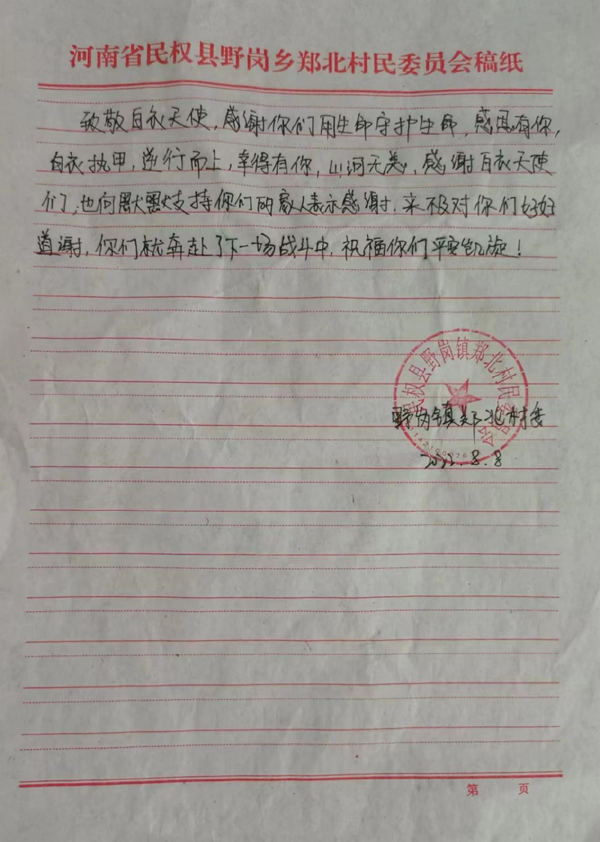 河南省民权县野岗乡郑北村民委员会稿纸
致敬白衣天使,感谢你们用生命守护生命,感恩有你,
白衣执甲,逆行而上,幸得有你,山河无恙,感谢白衣天使
们,也向默默支持你们的家人表示感谢.来不及对你们好好
道谢,你们就奔赴了下一场战斗中,祝福你们平安凯旋!
民权县野岗镇郑北村民
野岗镇郑北村委
2022.8.8
第 页